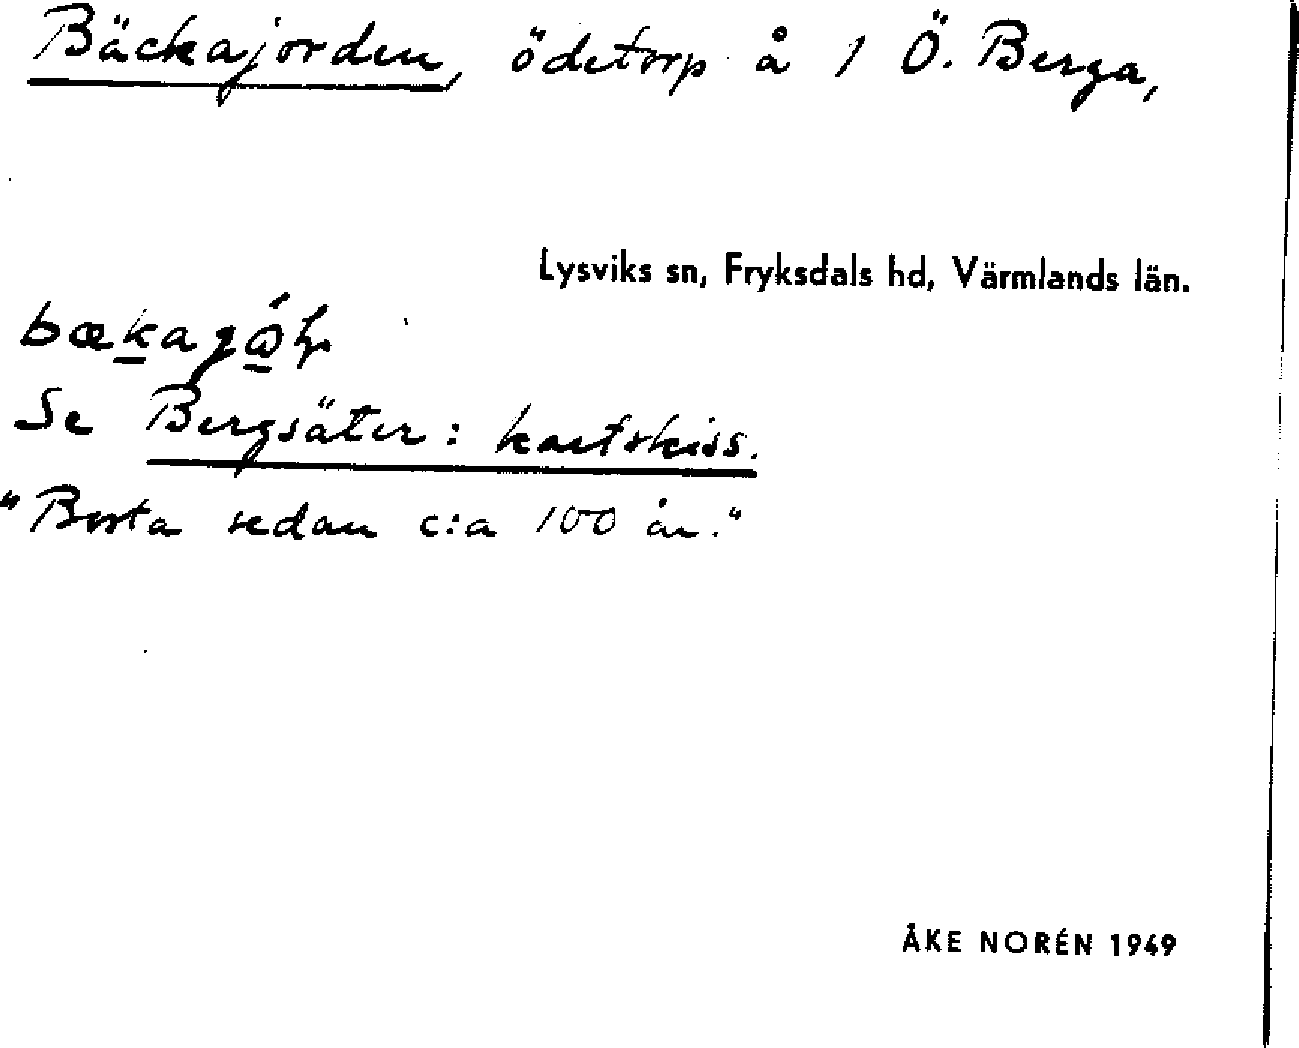 Bäckajorden, ödetorp å 1 Ö. Berga,
Lysviks sn, Fryksdals hd, Värmlands län.
Se Bergsäter: kartskiss.
"Borta sedan c:a 100 år."
ÅKE NORÉN 1949